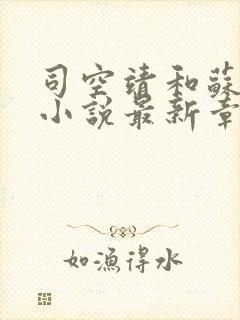 司空靖和蘇
小說最新章
如漁得水